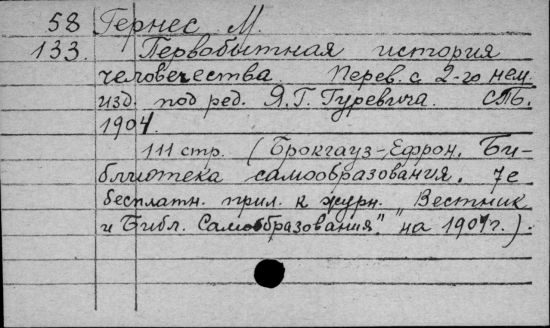 58 Гернес М.
133. Первобытная история
человечества. Перев. с 2-го нем.
изд. под ред. Я. Г. Гуревича. СПБ.
1904.
111 стр. (Брокгауз-Ефрон. Би-
блиотека самообразования. 7е
бесплатн. прил. к журн. "Вестник
и Библ. Самообразования" на 1904 г.).